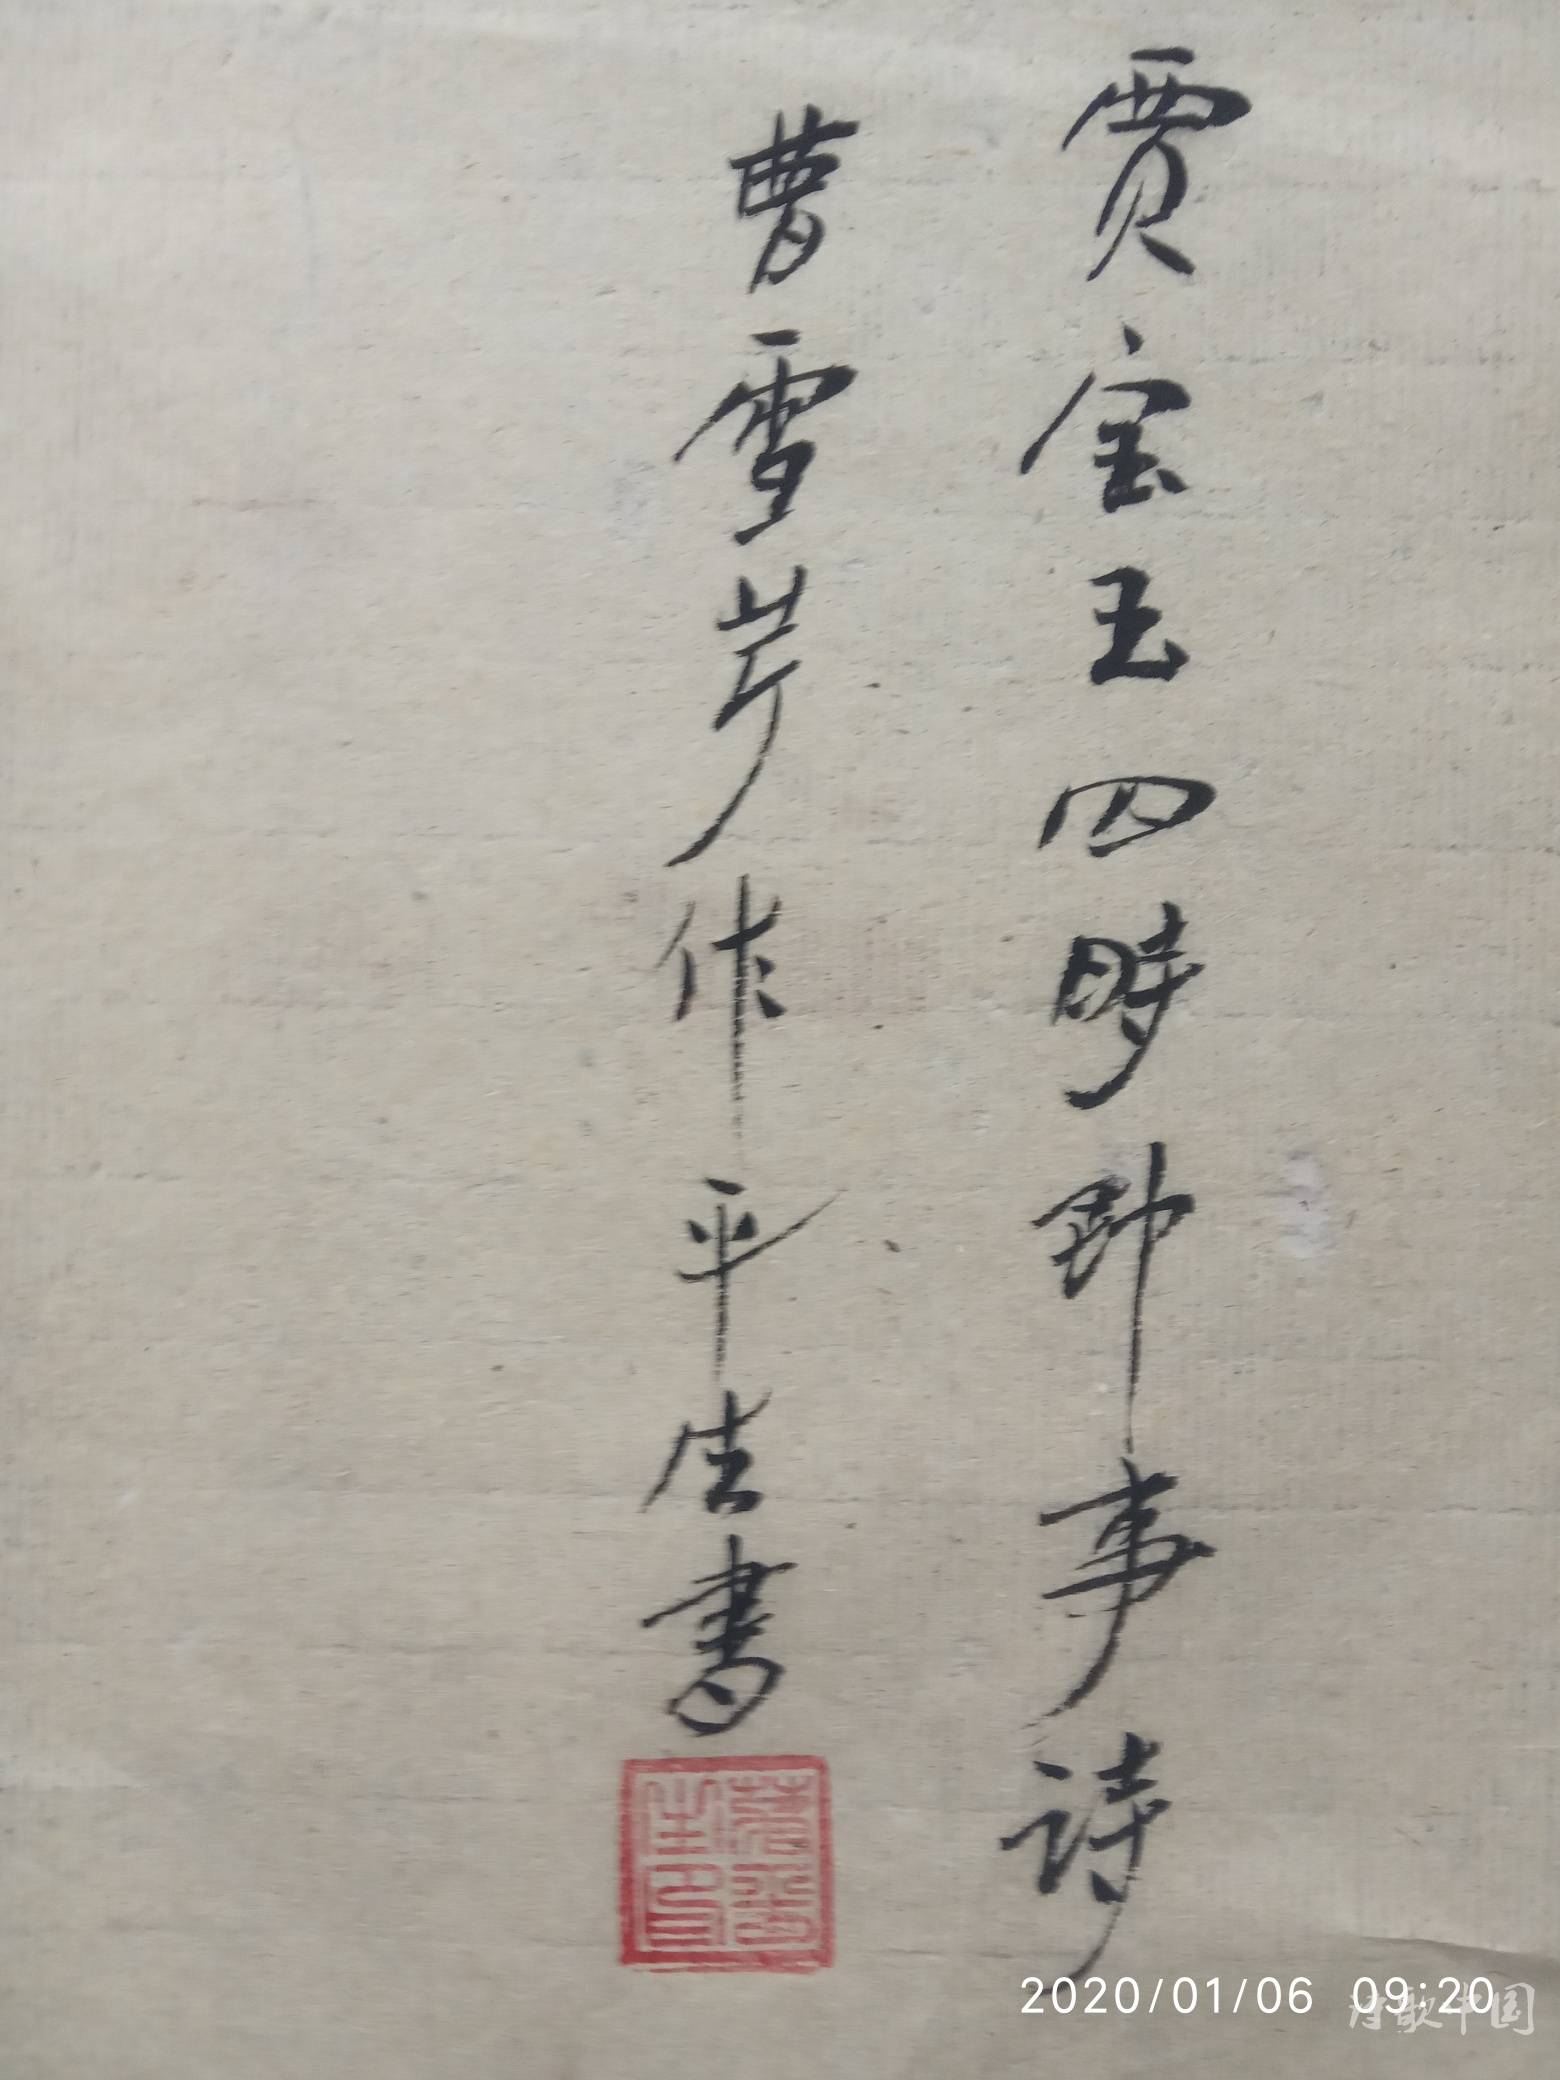 贾宝玉四時即事詩
曹雪芹作平生書
2020/01/06 09:20
诗歌中国